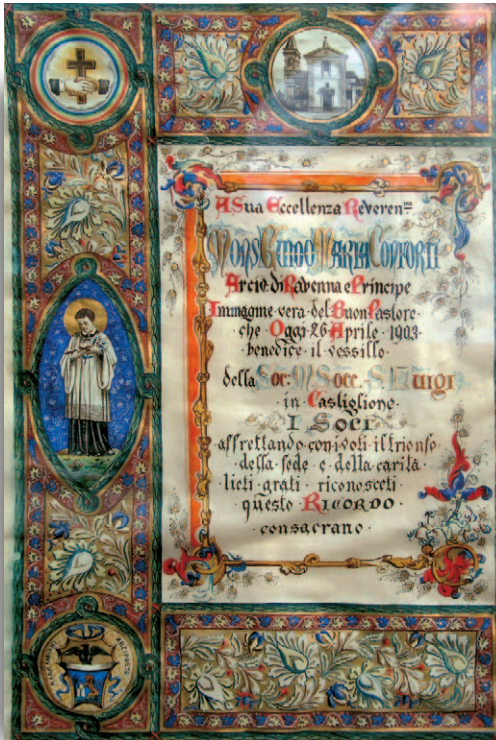 A Sua Eccellenza Reveren.ma
Mons. Guido Maria Conforti
Arciv. di Ravenna e Principe
Immagine vera del Buon Pastore
che Oggi 26 Aprile 1903
benedice il vessillo
della Soc. M. Socc. S. Luigi
in Castiglione
I Soci
affrettando con i voti il trionfo
della fede e della carità
lieti grati riconoscenti
questo Ricordo
consacrano